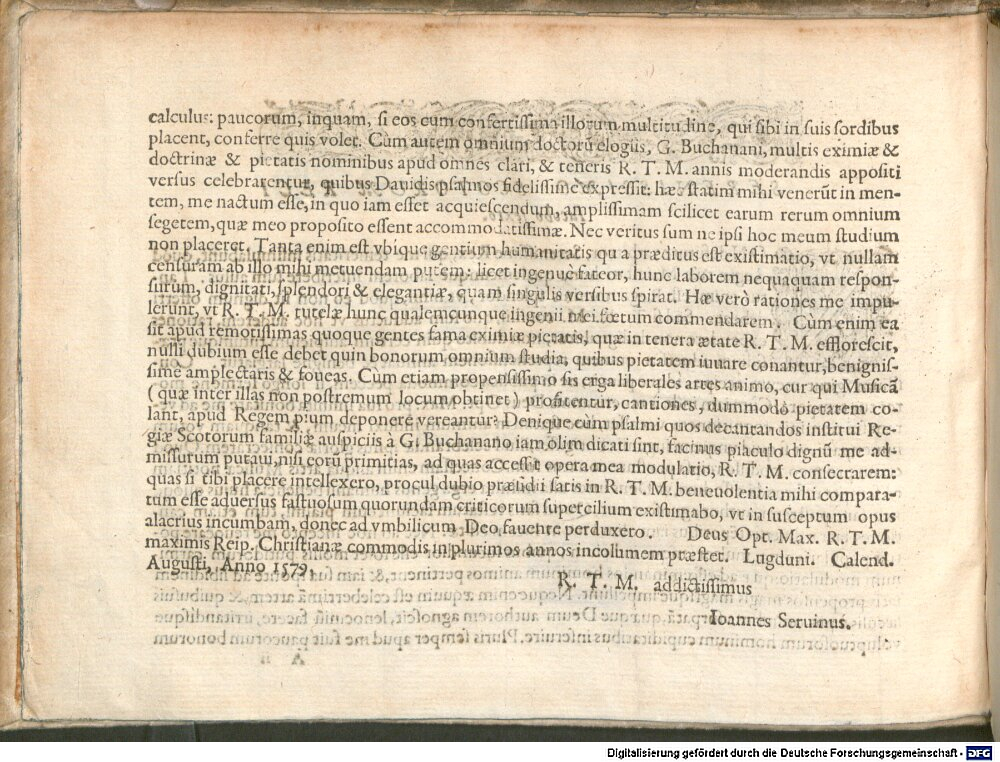 calculus: paucorum, inquam, si eos cum confertissima illorum multitudine, qui sibi in suis sordibus
placent, conferre quis volet. Cùm autem omnium doctorū elogiis, G. Buchanani, multis eximiæ &
doctrinæ & pietatis nominibus apud omnes clari, & teneris R. T. M. annis moderandis appositi
versus celebrarentur, quibus Dauidis psalmos fidelissimè expressit: hæc statim mihi venerūt in men-
tem, me nactum esse, in quo iam esset acquiescendum, amplissimam scilicet earum rerum omnium
segetem, quæ meo proposito essent accommodatissimæ. Nec veritus sum ne ipsi hoc meum studium
non placeret. Tanta enim est vbique gentium humanitatis qua præditus est existimatio, vt nullam
censuram ab illo mihi metuendam putem: licet ingenuè fatear, hunc laborem nequaquam respon-
surum, dignitati, splendori & elegantiæ, quam singulis versibus spirat. Hæ verò rationes me impu-
lerunt, vt R. T. M. tutelæ hunc qualemcunque ingenii mei fœtum commendarem. Cùm enim ea
sit apud remotissimas quoque gentes fama eximiæ pietatis, quæ in tenera ætate R. T. M. efflorescit,
nulli dubium esse debet quin bonorum omnium studia, quibus pietatem iuuare conantur, benignis-
simè amplectaris & foueas. Cùm etiam propensissimo sis erga liberales artes animo, cur qui Musicā
(quæ inter illas non postremum locum obtinet) profitentur, cantiones, dummodò pietatem co-
lant, apud Regem pium deponere vereantur? Denique cùm psalmi quos decantandos institui Re-
giæ Scotorum familiæ auspiciis à G. Buchanano iam olim dicati sint, facinus piaculo dignū me ad-
missurum putaui, nisi eorū primitias, ad quas accessit opera mea modulatio, R. T. M. consecrarem:
quas si tibi placere intellexero, procul dubio præsidii satis in R. T. M. beneuolentia mihi compara-
tum esse aduersus fastuosum quorundam criticorum supercilium existimabo, vt in susceptum opus
alacrius incumbam, donec ad vmbilicum Deo fauente perduxero. Deus Opt. Max. R. T. M.
maximis Reip. Christianæ commodis in plurimos annos incolumem præstet. Lugduni. Calend.
Augusti, Anno 1579.
R. T. M. addictissimus
Ioannes Seruinus.
Digitalisierung gefördert durch die Deutsche Forschungsgemeinschaft - DFG